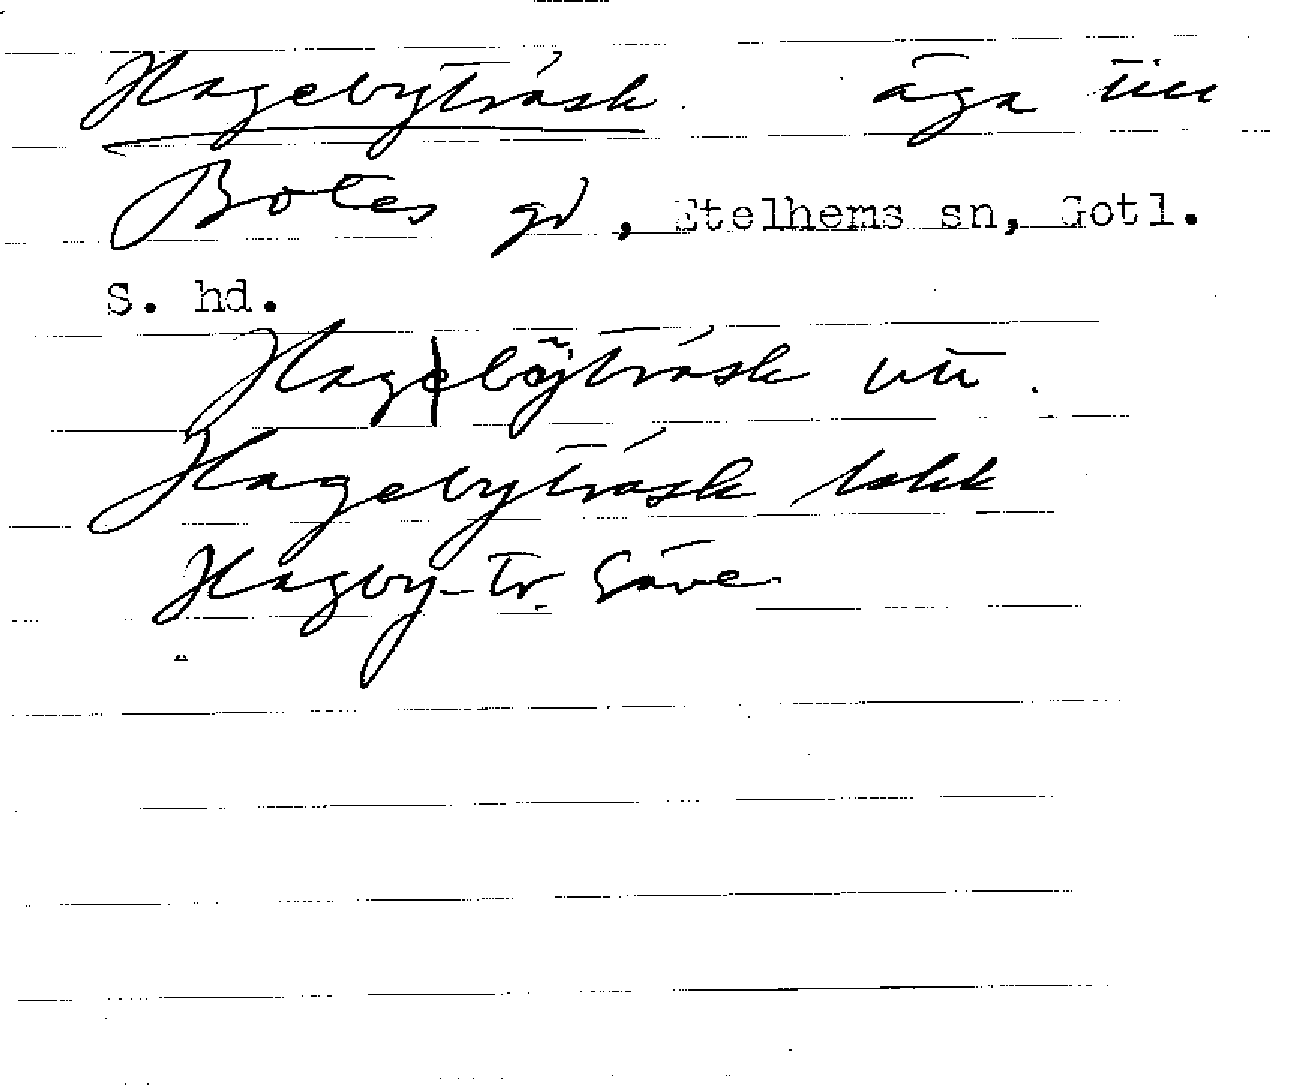 Hagebyträsk äga till
Botes gd, Etelhems sn, Gotl.
S. hd.
Hagebyträsk utt.
Hagebyträsk
Hagby-tr. Säve